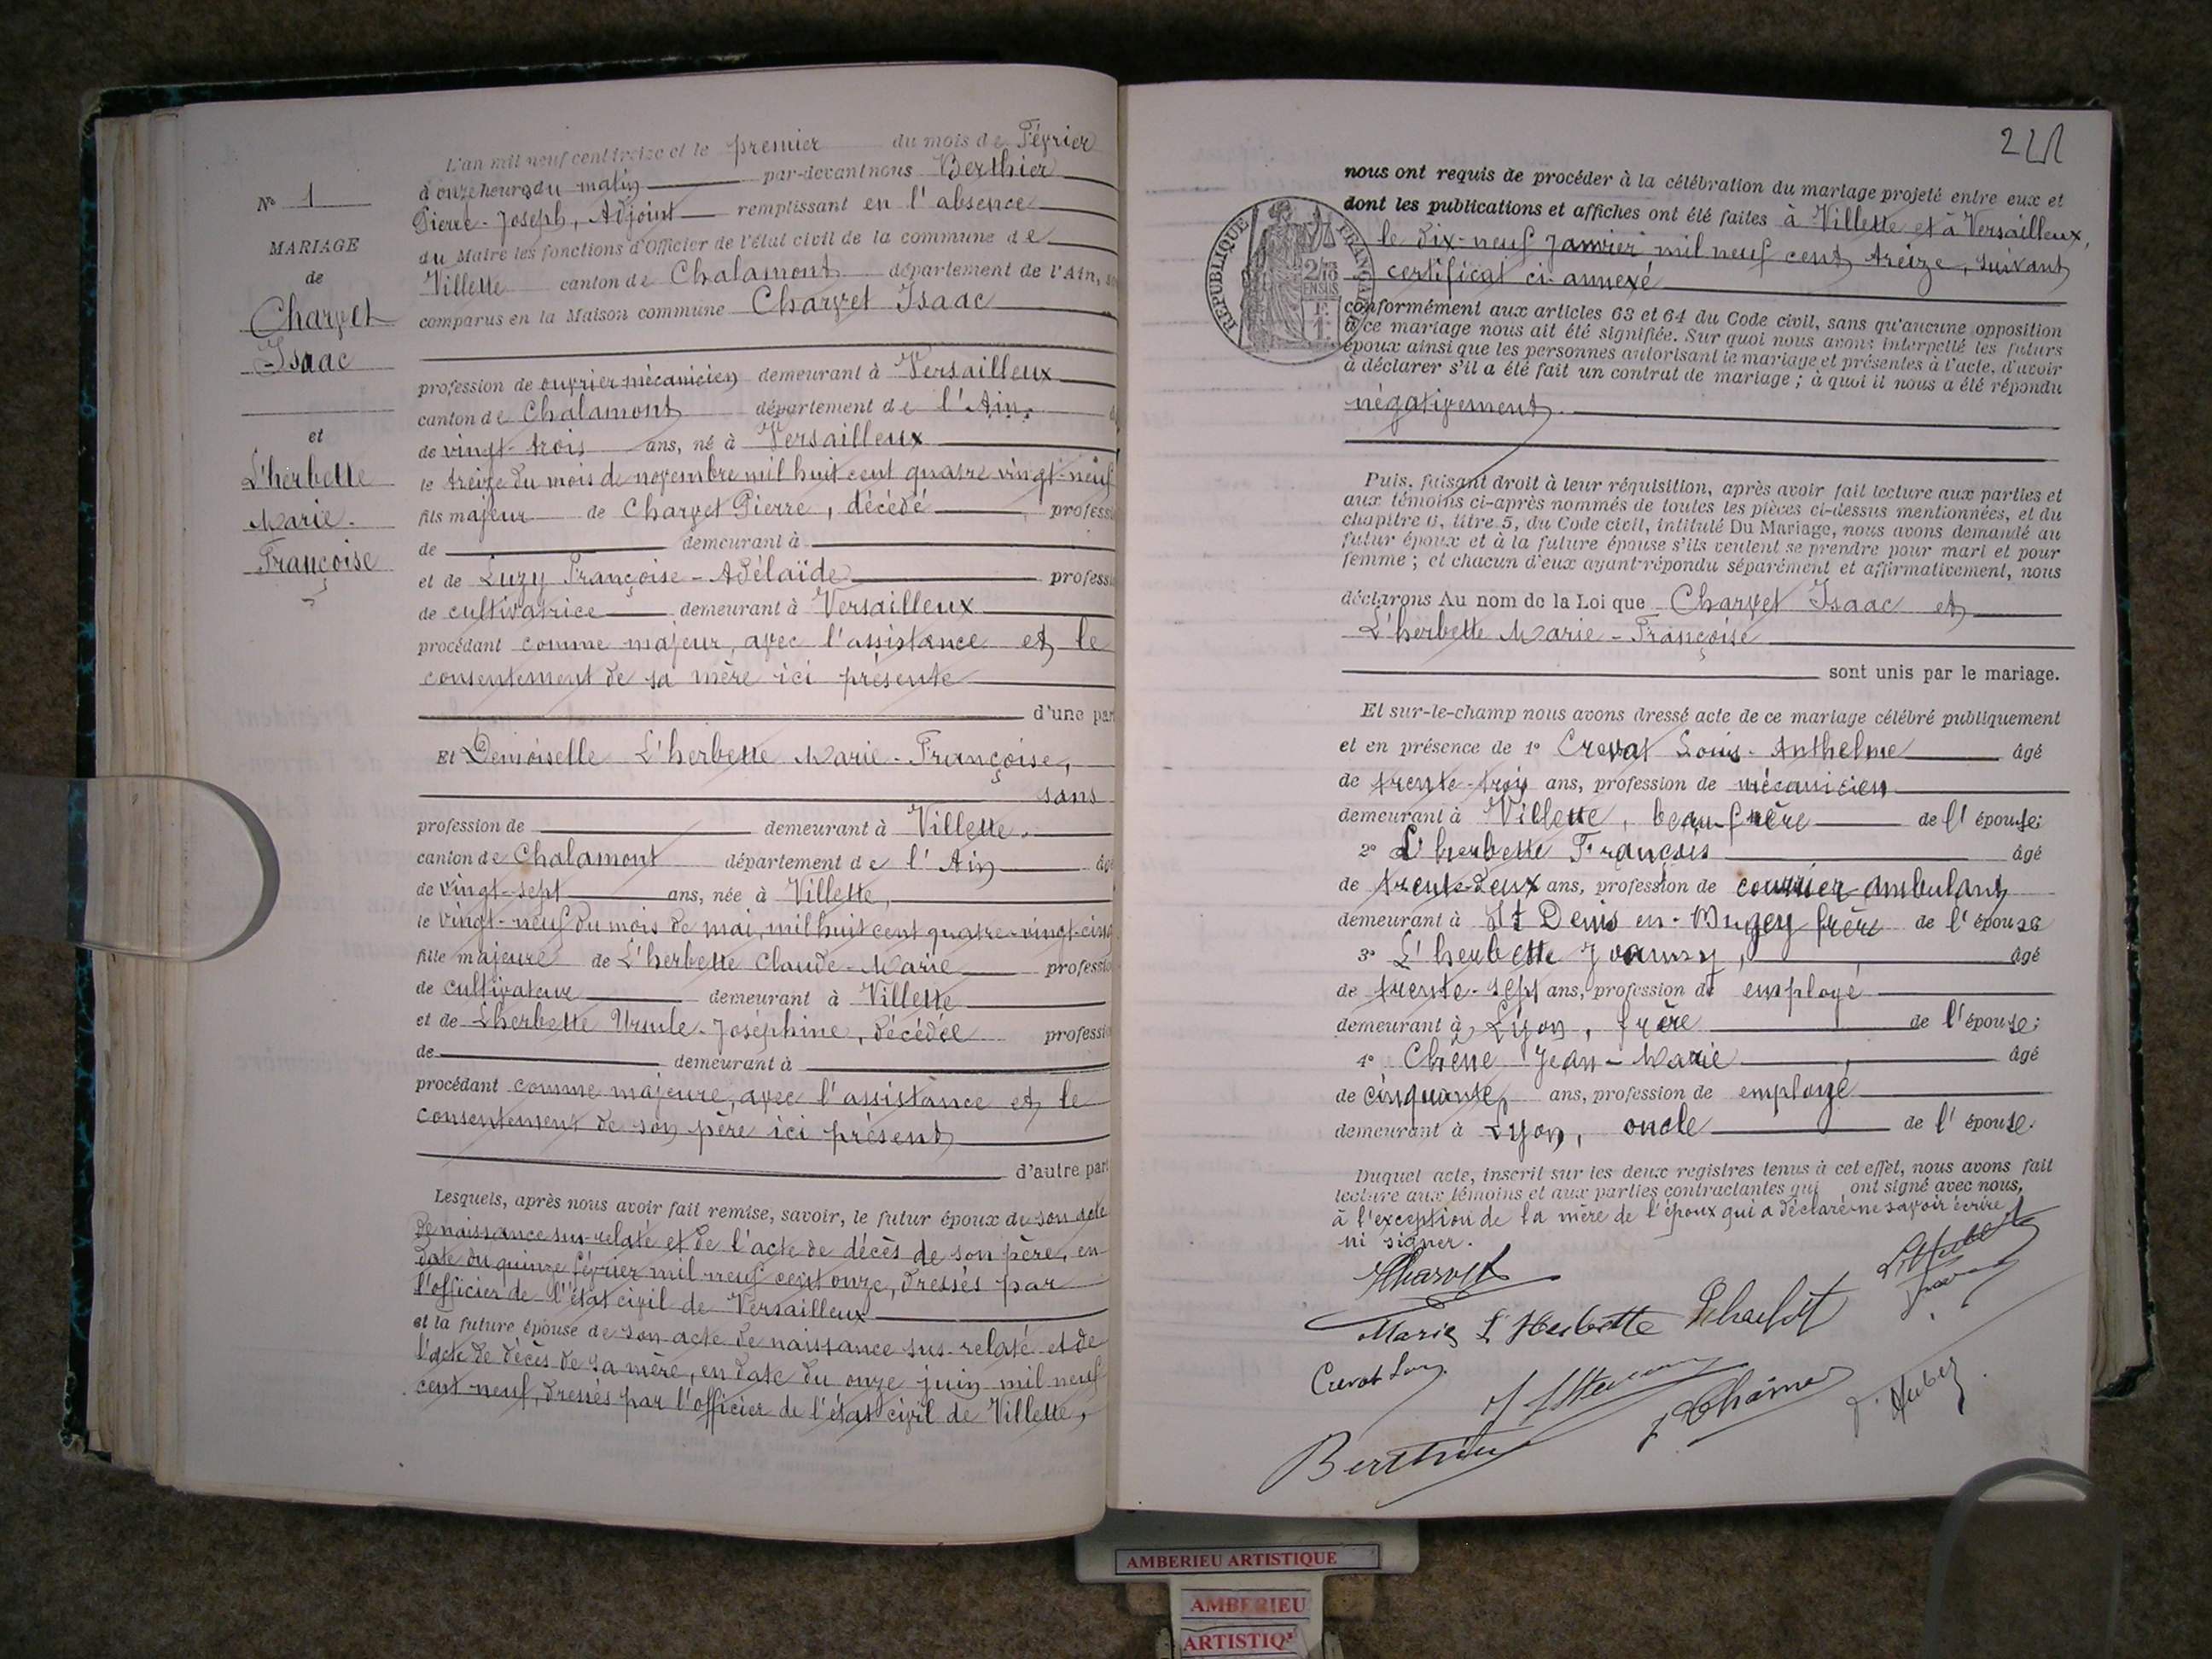 L'an mil neuf cent treize et le premier du mois de Février
à onze heures du matin par-devant nous Berthier
Pierre-Joseph, Adjoint remplissant en l'absence
du Maire les fonctions d'Officier de l'état civil de la commune de
Villette canton de Chalamont département de l'Ain,
comparus en la Maison commune Charvet Isaac
profession de ouvrier mécanicien demeurant à Versailleux
canton de Chalamont département de l'Ain,
de vingt-trois ans, né à Versailleux
le treize du mois de novembre mil huit cent quatre vingt-neuf
fils majeur de Charvet Pierre, décédé profess
de demeurant à
et de Luzy Françoise-Adélaïde professi
de cultivatrice demeurant à Versailleux
procédant comme majeur, avec l'assistance et le
consentement de sa mère ici présente
d'une part
Et Demoiselle L'herbette Marie-Françoise,
sans
profession de demeurant à Villette.
canton de Chalamont département de l'Ain âgé
de vingt-sept ans, née à Villette,
le vingt-neuf du mois de mai, mil huit cent quatre-vingt-cinq
fille majeure de L'herbette Claude-Marie professio
de cultivateur demeurant à Villette
et de Lherbette Ursule-Joséphine, décédée professio
de demeurant à
procédant comme majeure, avec l'assistance et le
consentement de son père ici présent
d'autre part
Lesquels, après nous avoir fait remise, savoir, le futur époux de son acte
de naissance sus-relaté et de l'acte de décès de son père, en
date du quinze février mil neuf cent onze, dressés par
l'officier de l'état civil de Versailleux
et la future épouse de son acte de naissance sus-relaté et de
l'acte de décès de sa mère, en date du onze juin mil neuf
cent neuf, dressés par l'officier de l'état civil de Villette,
N° 1
MARIAGE
de
Charvet
Isaac
et
L'herbette
Marie-
Françoise
nous ont requis de procéder à la célébration du mariage projeté entre eux et
dont les publications et affiches ont été faites à Villette et à Versailleux,
le dix-neuf Janvier mil neuf cent treize, suivant
certificat ci-annexé
conformément aux articles 63 et 64 du Code civil, sans qu'aucune opposition
à ce mariage nous ait été signifiée. Sur quoi nous avons interpellé les futurs
époux ainsi que les personnes autorisant le mariage et présentes à l'acte, d'avoir
à déclarer s'il a été fait un contrat de mariage ; à quoi il nous a été répondu
négativement.
RÉPUBLIQUE FRANÇAISE
Puis, faisant droit à leur réquisition, après avoir fait lecture aux parties et
aux témoins ci-après nommés de toutes les pièces ci-dessus mentionnées, et du
chapitre 6, titre 5, du Code civil, intitulé Du Mariage, nous avons demandé au
futur époux et à la future épouse s'ils veulent se prendre pour mari et pour
femme ; et chacun d'eux ayant répondu séparément et affirmativement, nous
déclarons Au nom de la Loi que Charvet Isaac et
L'herbette Marie-Françoise
sont unis par le mariage.
Et sur-le-champ nous avons dressé acte de ce mariage célébré publiquement
et en présence de 1° Crevat Louis-Anthelme âgé
de trente-trois ans, profession de mécanicien
demeurant à Villette, beau-frère de l'épouse;
2° L'herbette François âgé
de trente-deux ans, profession de courrier-ambulant
demeurant à St Denis-en-Bugey frère de l'épouse
3° L'herbette Joanny, âgé
de trente-sept ans, profession de employé
demeurant à Lyon, frère de l'épouse;
4° Chêne Jean-Marie, âgé
de cinquante, ans, profession de employé
demeurant à Lyon, oncle de l'épouse.
Duquel acte, inscrit sur les deux registres tenus à cet effet, nous avons fait
lecture aux témoins et aux parties contractantes qui ont signé avec nous,
à l'exception de la mère de l'époux qui a déclaré ne savoir écrire
ni signer.
Charvet
Marie L'Herbette
Crevat Louis
Berthier
AMBERIEU ARTISTIQUE
AMBERIEU
ARTISTIQ